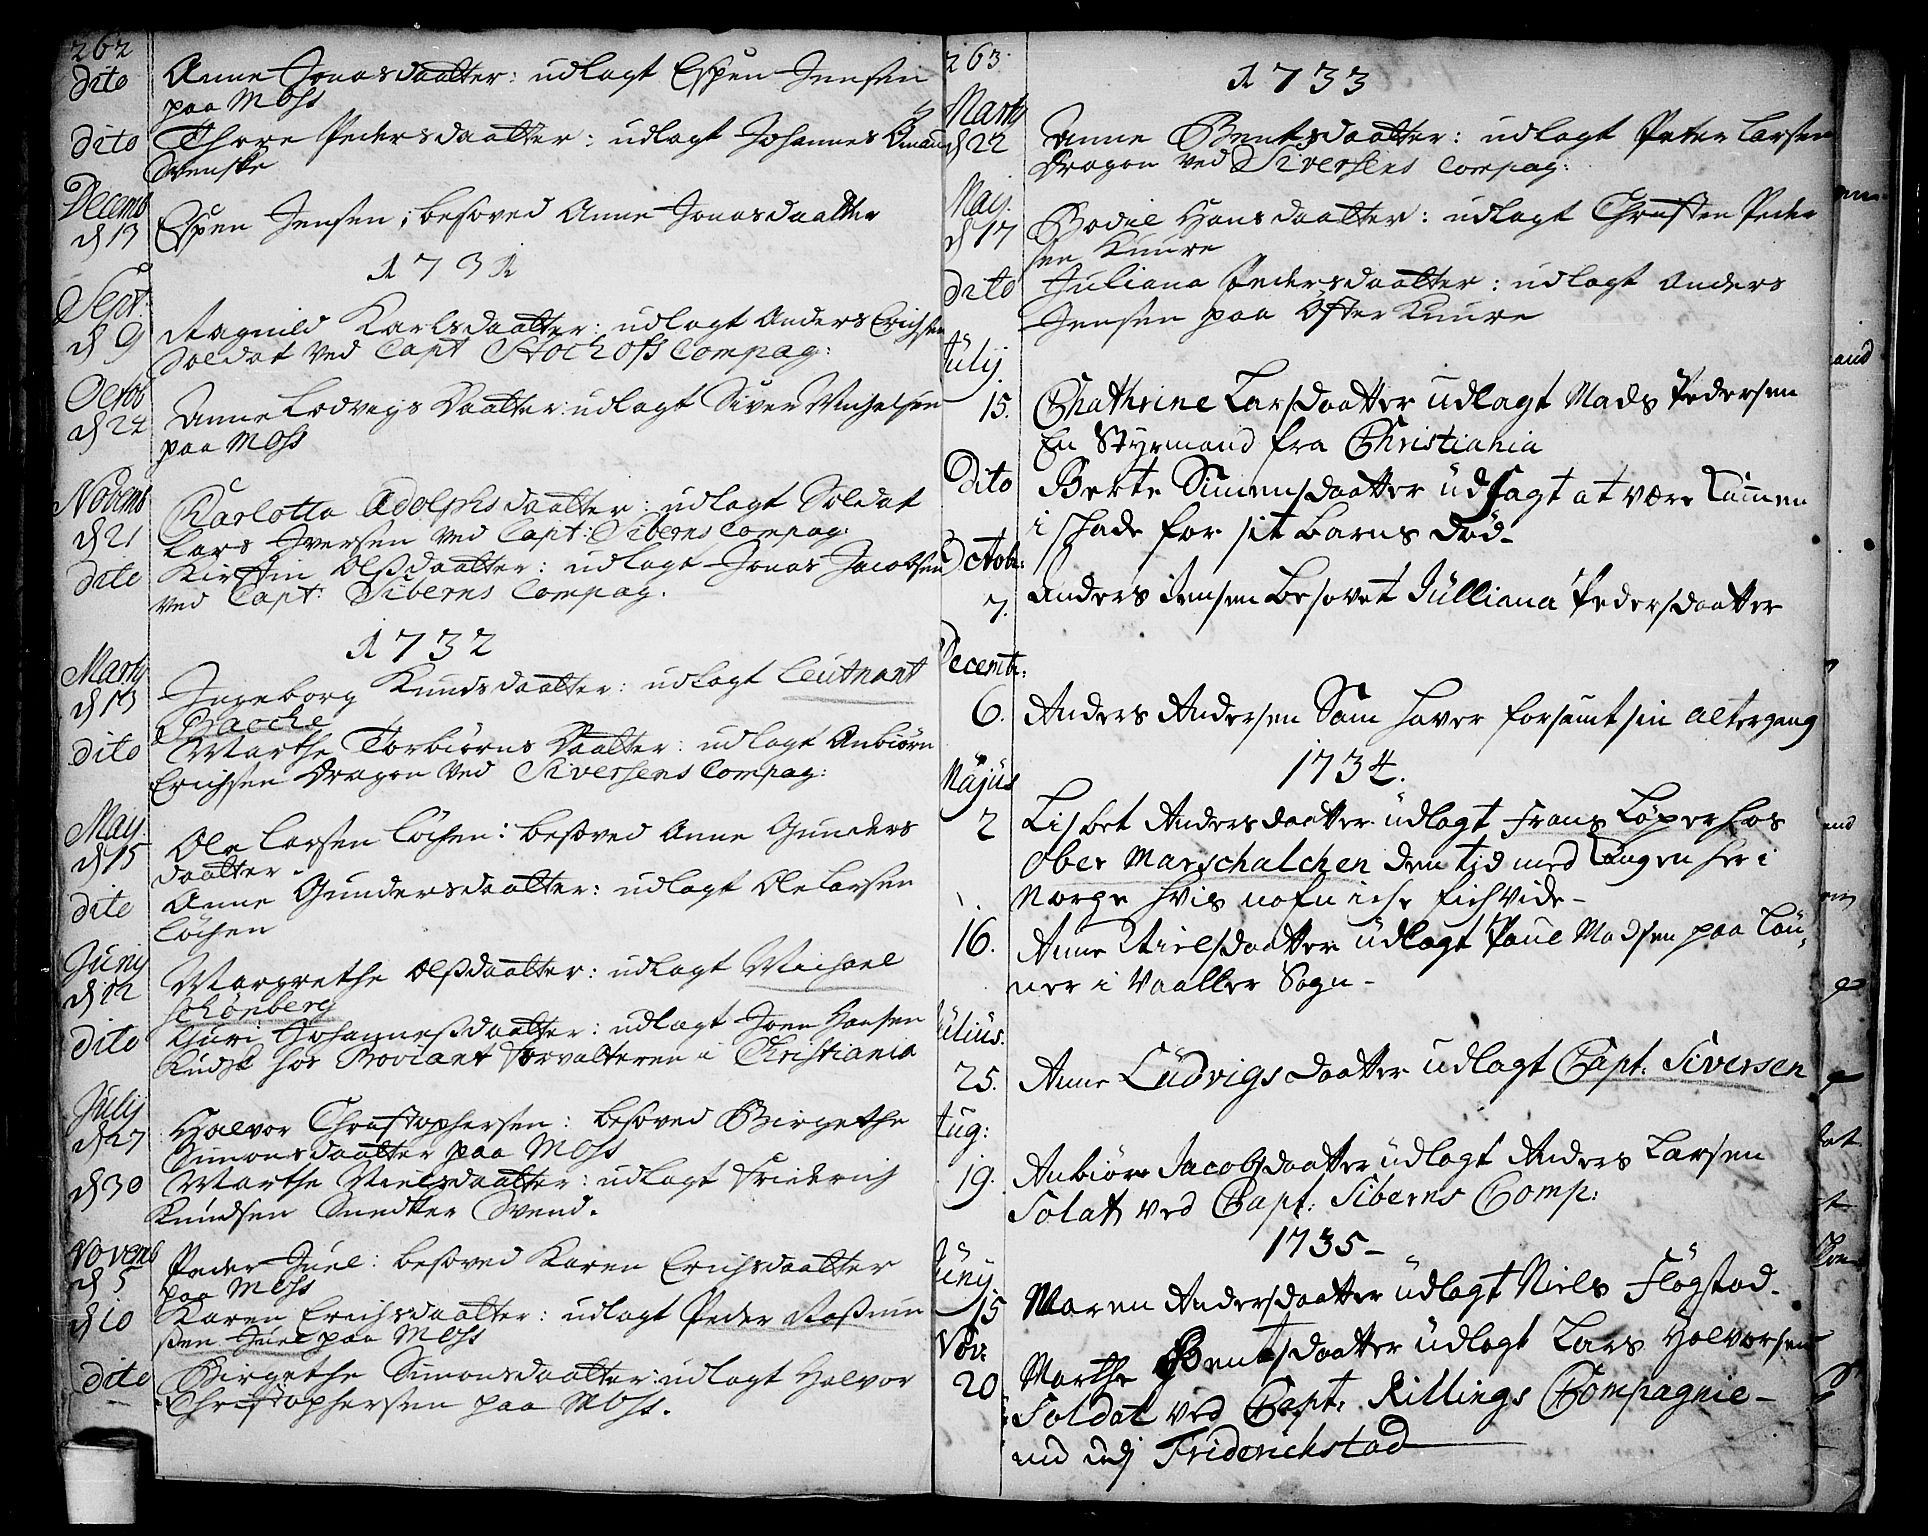 262
dito Anne Jonasdaatter: udlagt Espen Jensen
paa Moss
dito Thore Pedersdaatter: udlagt Johannes
Svenske
Decemb
d 13 Espen Jensen; besoved Anne Jonasdaatter
1731
Sept.
d 9 Ragnild Karlsdaatter: udlagt Anders Erichsen
Soldat ved Capt Stochofs Compag:
Octob
d 22 Anne Lodvegs Daatter: udlagt Siver Michelsen
paa Moss
Novemb
d 21 Karlotta Adolphsdaatter: udlagt Soldat
Lars Iversen ved Capt: Siberns Compag:
dito Kirstin Olssdaatter: udlagt Jonas Jacobsen
ved Capt: Siberns Compag.
1732
Marty
d 13 Ingeborg Knudsdaatter: udlagt Leutnant
Bacche
dito Marthe Torbiørns Daatter: udlagt Anbiørn
Erichsen Dragon ved Siversens Compag:
May.
d 15 Ole Larsen Løchen: besoved Anne Gunders
daatter.
dito Anne Gundersdaatter: udlagt Ole Larsen
Løchen
Juny
d 12 Margrethe Olssdaatter: udlagt Michael
Schönberg
dito Guri Johannessdaatter: udlagt Joen Hansen
Kudsk hos Proviant Forvalteren i Christiania
July
d 27 Halvor Christophersen: besoved Birgethe
Simonsdaatter paa Moss
d 30 Marthe Nielsdaatter: udlagt Friederich
Knudsen Snedker Svend.
Novemb
d 5 Peder Juel: besoved Karen Erichsdaatter
paa Moss
d 10 Karen Erichsdaatter: udlagt Peder Rassmu
ssen Juel paa Moss
dito Birgethe Simonsdaatter: udlagt Halvor
Christophersen paa Moss.
263.
1733
Marty
d 22 Anne Bentsdaatter: udlagt Peter Larsen
Dragon ved Siversens Compag:
May.
d 17 Bodil Hansdaatter: udlagt Christen Peder
sen Kuure
dito Juliana Pedersdaatter: udlagt Anders
Jensen paa Øster Kuure
July.
15. Chathrine Larsdaatter udlagt Mads Pedersen
En Styrmand fra Christiania
Dito Berte Simensdaatter udsagt at være kommen
i skade for sit Barns Død-
Octobr:
7. Anders Jensen Besovet Julliana Pedersdaatter
Decembr:
6. Anders Andersen Som haver forsømt sin altergang
1734.
Majus
2 Lisbet Andersdaatter udlagt Frans Løper hos
Ober Marschalchen den tid med Kongen her i
Norge hvis nafn iche fich vide-
16. Anne Nielsdaatter udlagt Poul Madsen paa Løu-
ner i Vaaller Sogn-
Julius.
25. Anne Ludvigs daatter udlagt Capt: Siversen
Aug:
19. Anbiør Jacobsdaatter udlagt Anders Larsen
Solat ved Capt: Siberns Comp:
1735-
Juny
15 Maren Andersdaatter udlagt Niels Fløgstad.
Nov:
20 Marthe Bentsdaatter udlagt Lars Halvorsen
Soldat ved Capt: Rillings Compagnie-
Friderichstad